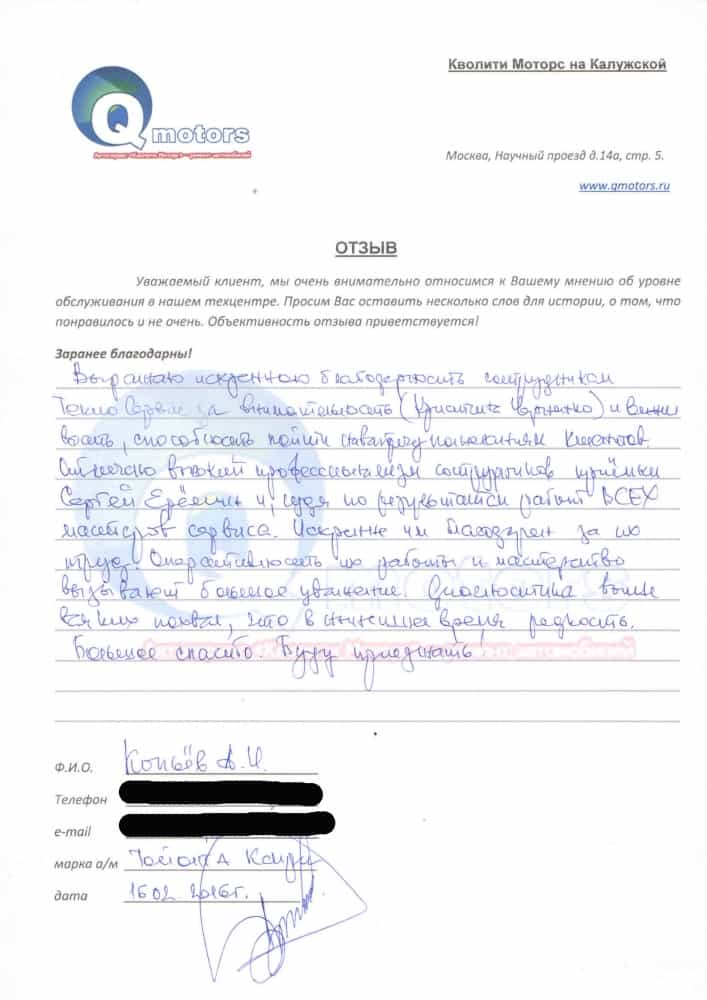 Кволити Моторс на Калужской
Q motors
Автосервис «Кволити Моторс» - ремонт автомобилей
Москва, Научный проезд д.14а, стр. 5.
www.qmotors.ru
ОТЗЫВ
Уважаемый клиент, мы очень внимательно относимся к Вашему мнению об уровне
обслуживания в нашем техцентре. Просим Вас оставить несколько слов для истории, о том, что
понравилось и не очень. Объективность отзыва приветствуется!
Заранее благодарны!
Выражаю искреннюю благодарность сотрудникам
Техно Сервис за внимательность ( ) и вежли
вость, способность пойти навстречу пожеланиям клиентов.
Отмечаю высокий профессионализм сотрудников приёмки
Сергей Ерёмин и, судя по результатам работ ВСЕХ
мастеров сервиса. Искренне им благодарен за их
труд. Оперативность их работы и мастерство
вызывают большое уважение. Диагностика выше
всяких похвал, что в нынешнее время редкость.
Большое спасибо. Буду приезжать!
Ф.И.О. Копьёв А.И.
Телефон
e-mail
марка а/м Тойота Камри
дата 16 02 2016г.